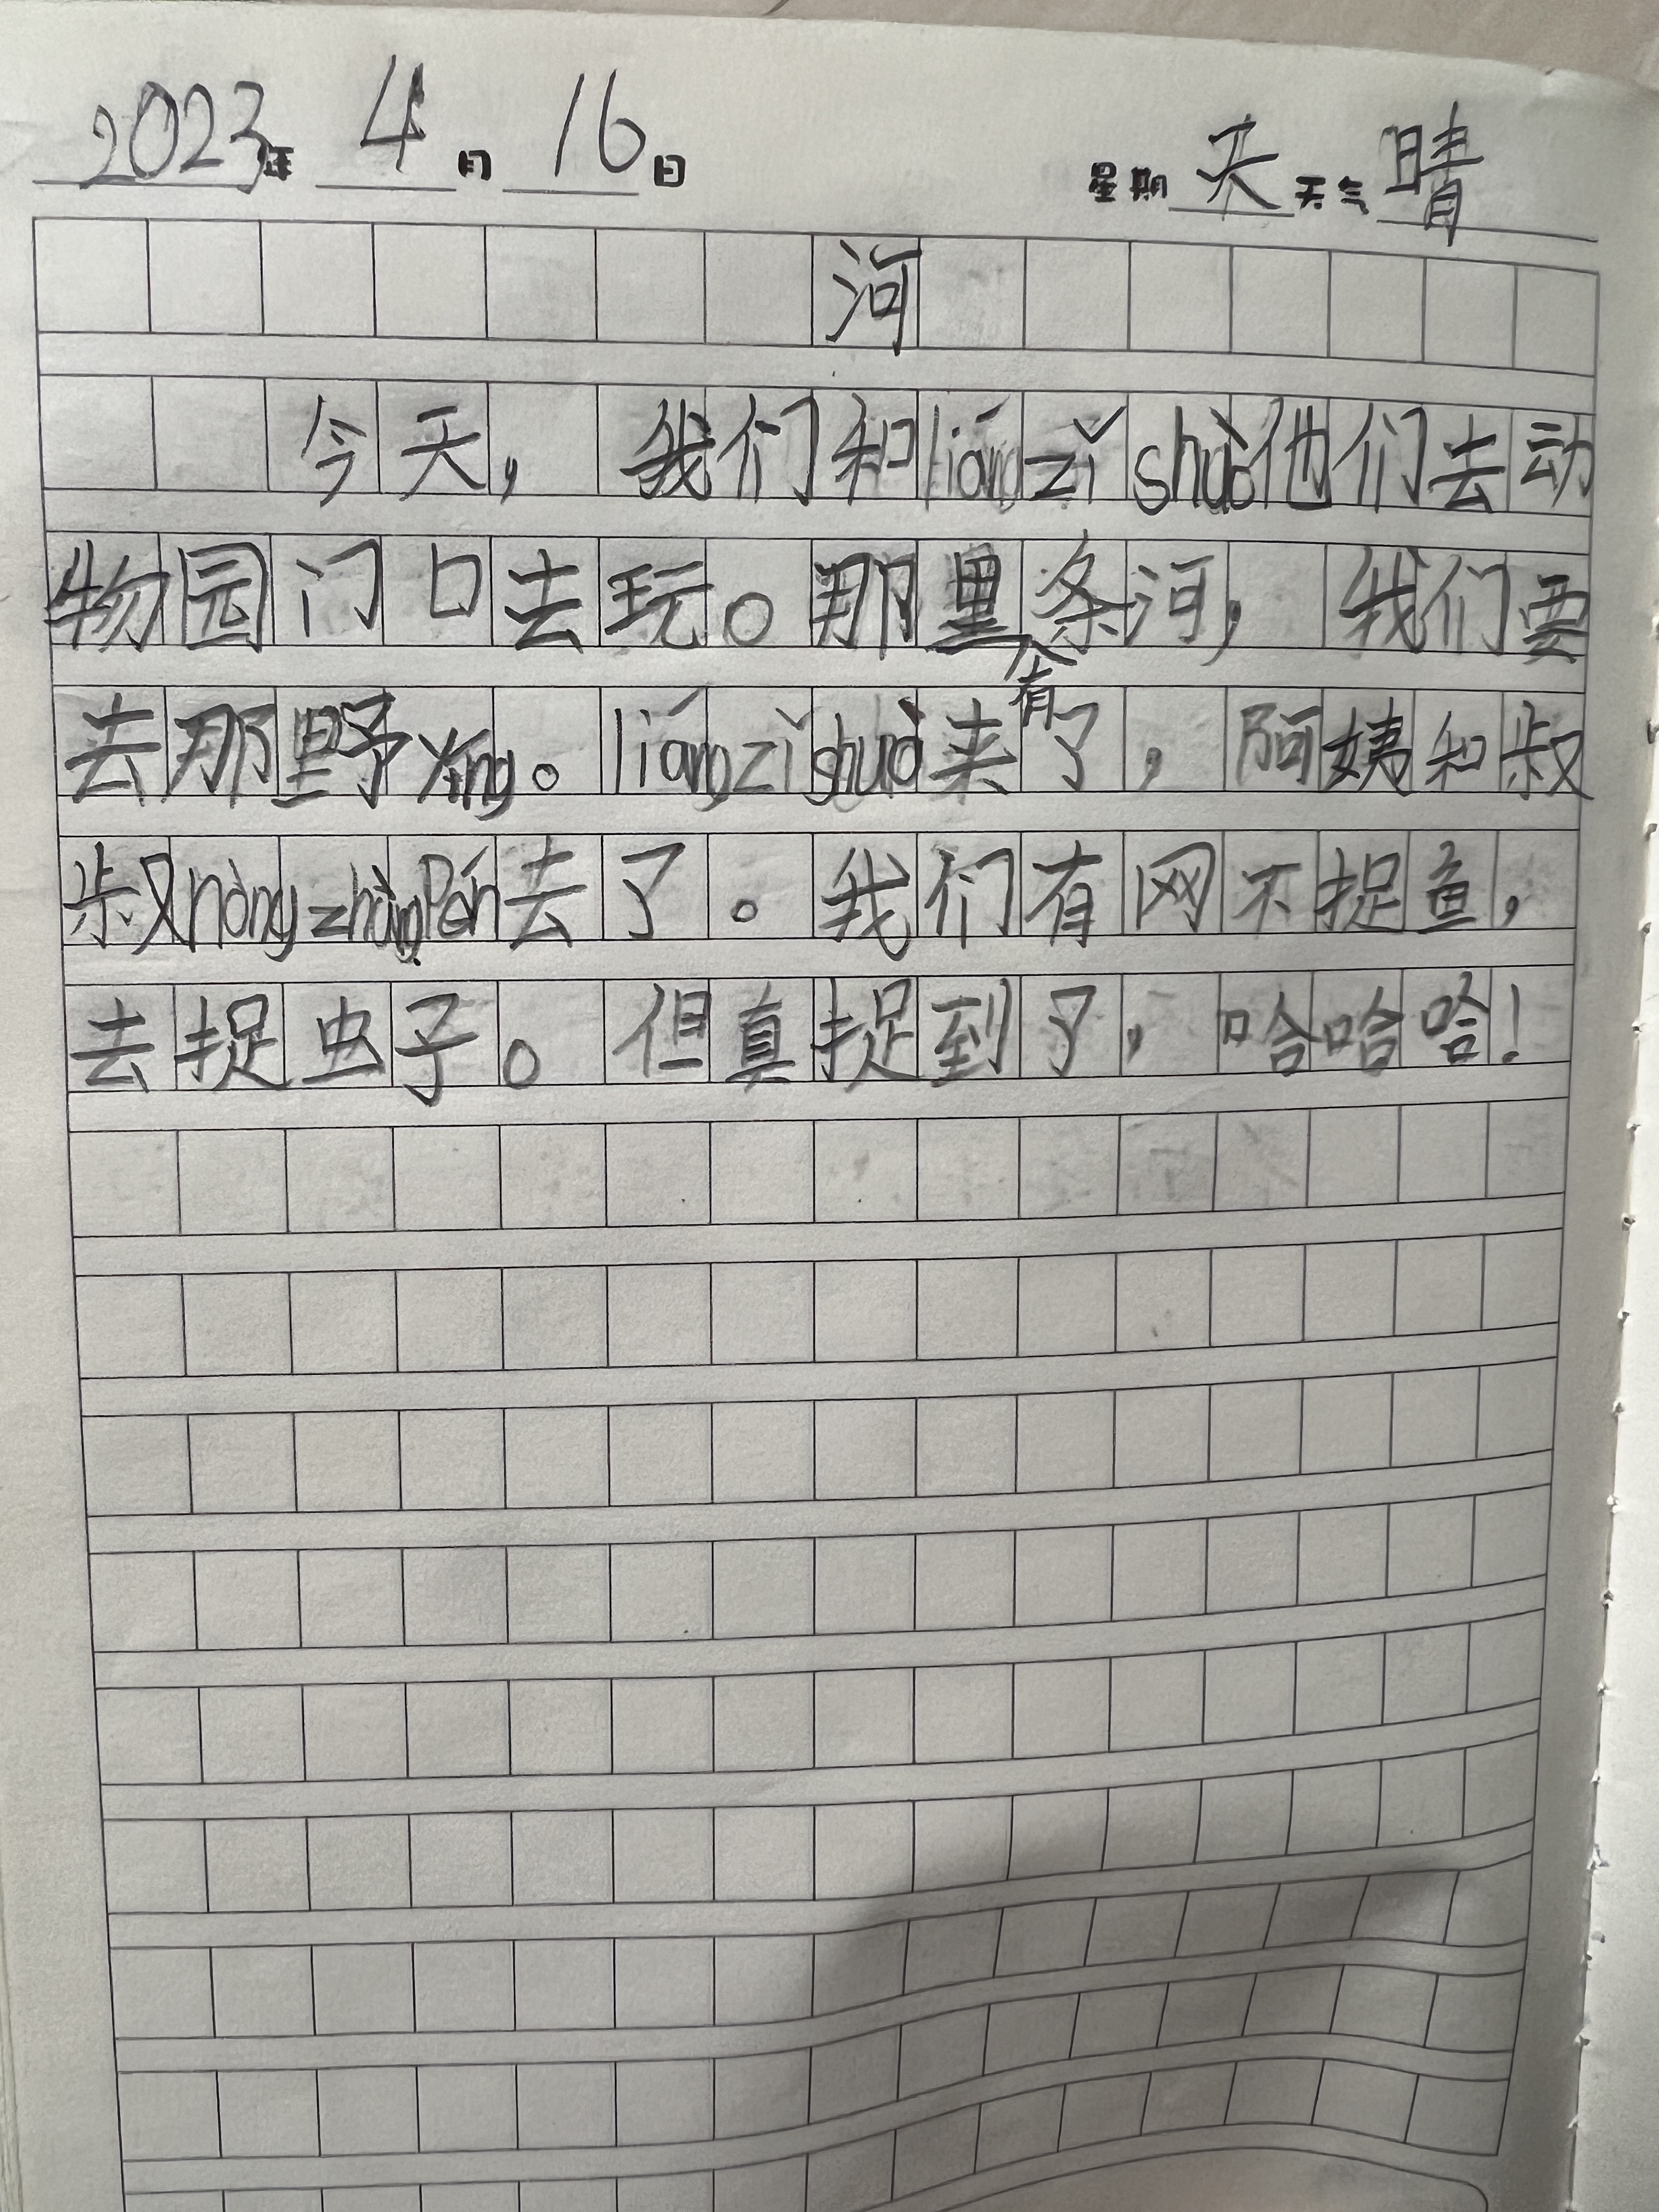 2023年 4月 16日 星期天 天气晴
河
今天，我们和liánɡzǐshuò他们去动
物园门口去玩。那里有条河，我们要
去那野yínɡ。liánɡzǐshuò来了，阿姨和叔
叔nònɡzhànɡPén去了。我们有网不捉鱼，
去捉虫子。但真捉到了，哈哈哈！